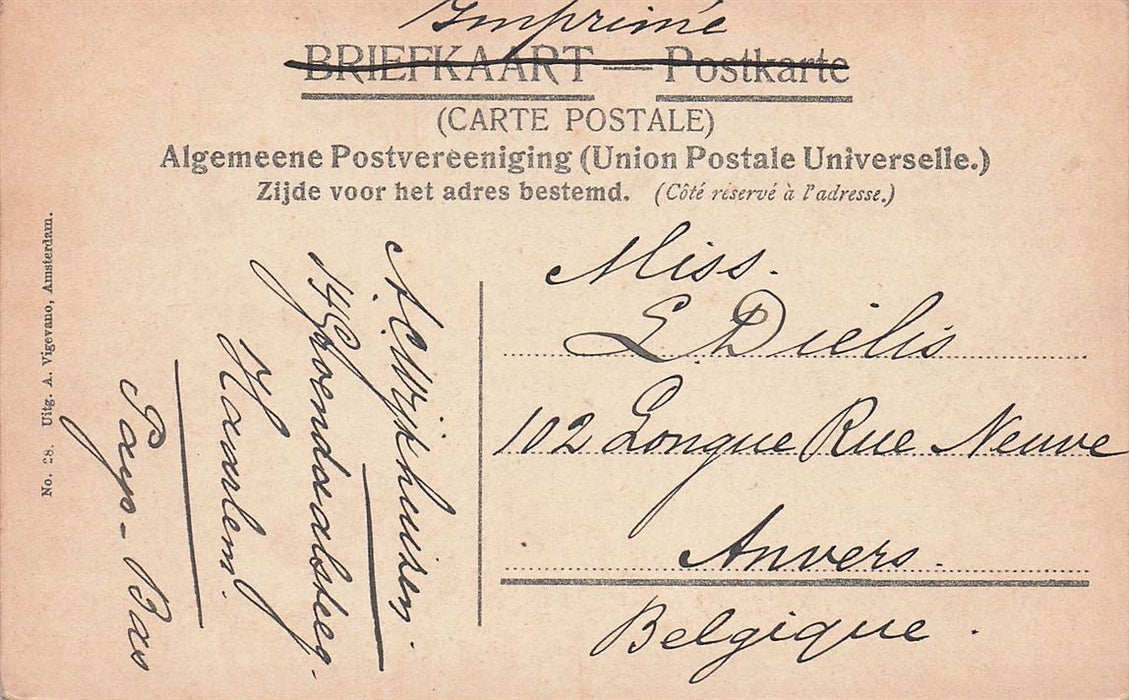 Imprimé
BRIEFKAART — Postkarte
(CARTE POSTALE)
Algemeene Postvereeniging (Union Postale Universelle.)
Zijde voor het adres bestemd. (Côté réservé à l'adresse.)
Miss.
L. Diélis
102 Longue Rue Neuve
Anvers.
Belgique.
A. C. Wijkhuisen.
14 Groendaalsteeg.
Haarlem.
Pays-Bas
No. 28. Uitg. A. Vigevano, Amsterdam.